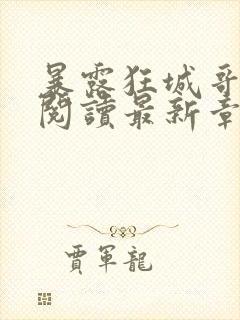 暴露狂城哥
閱讀最新章
賈軍龍